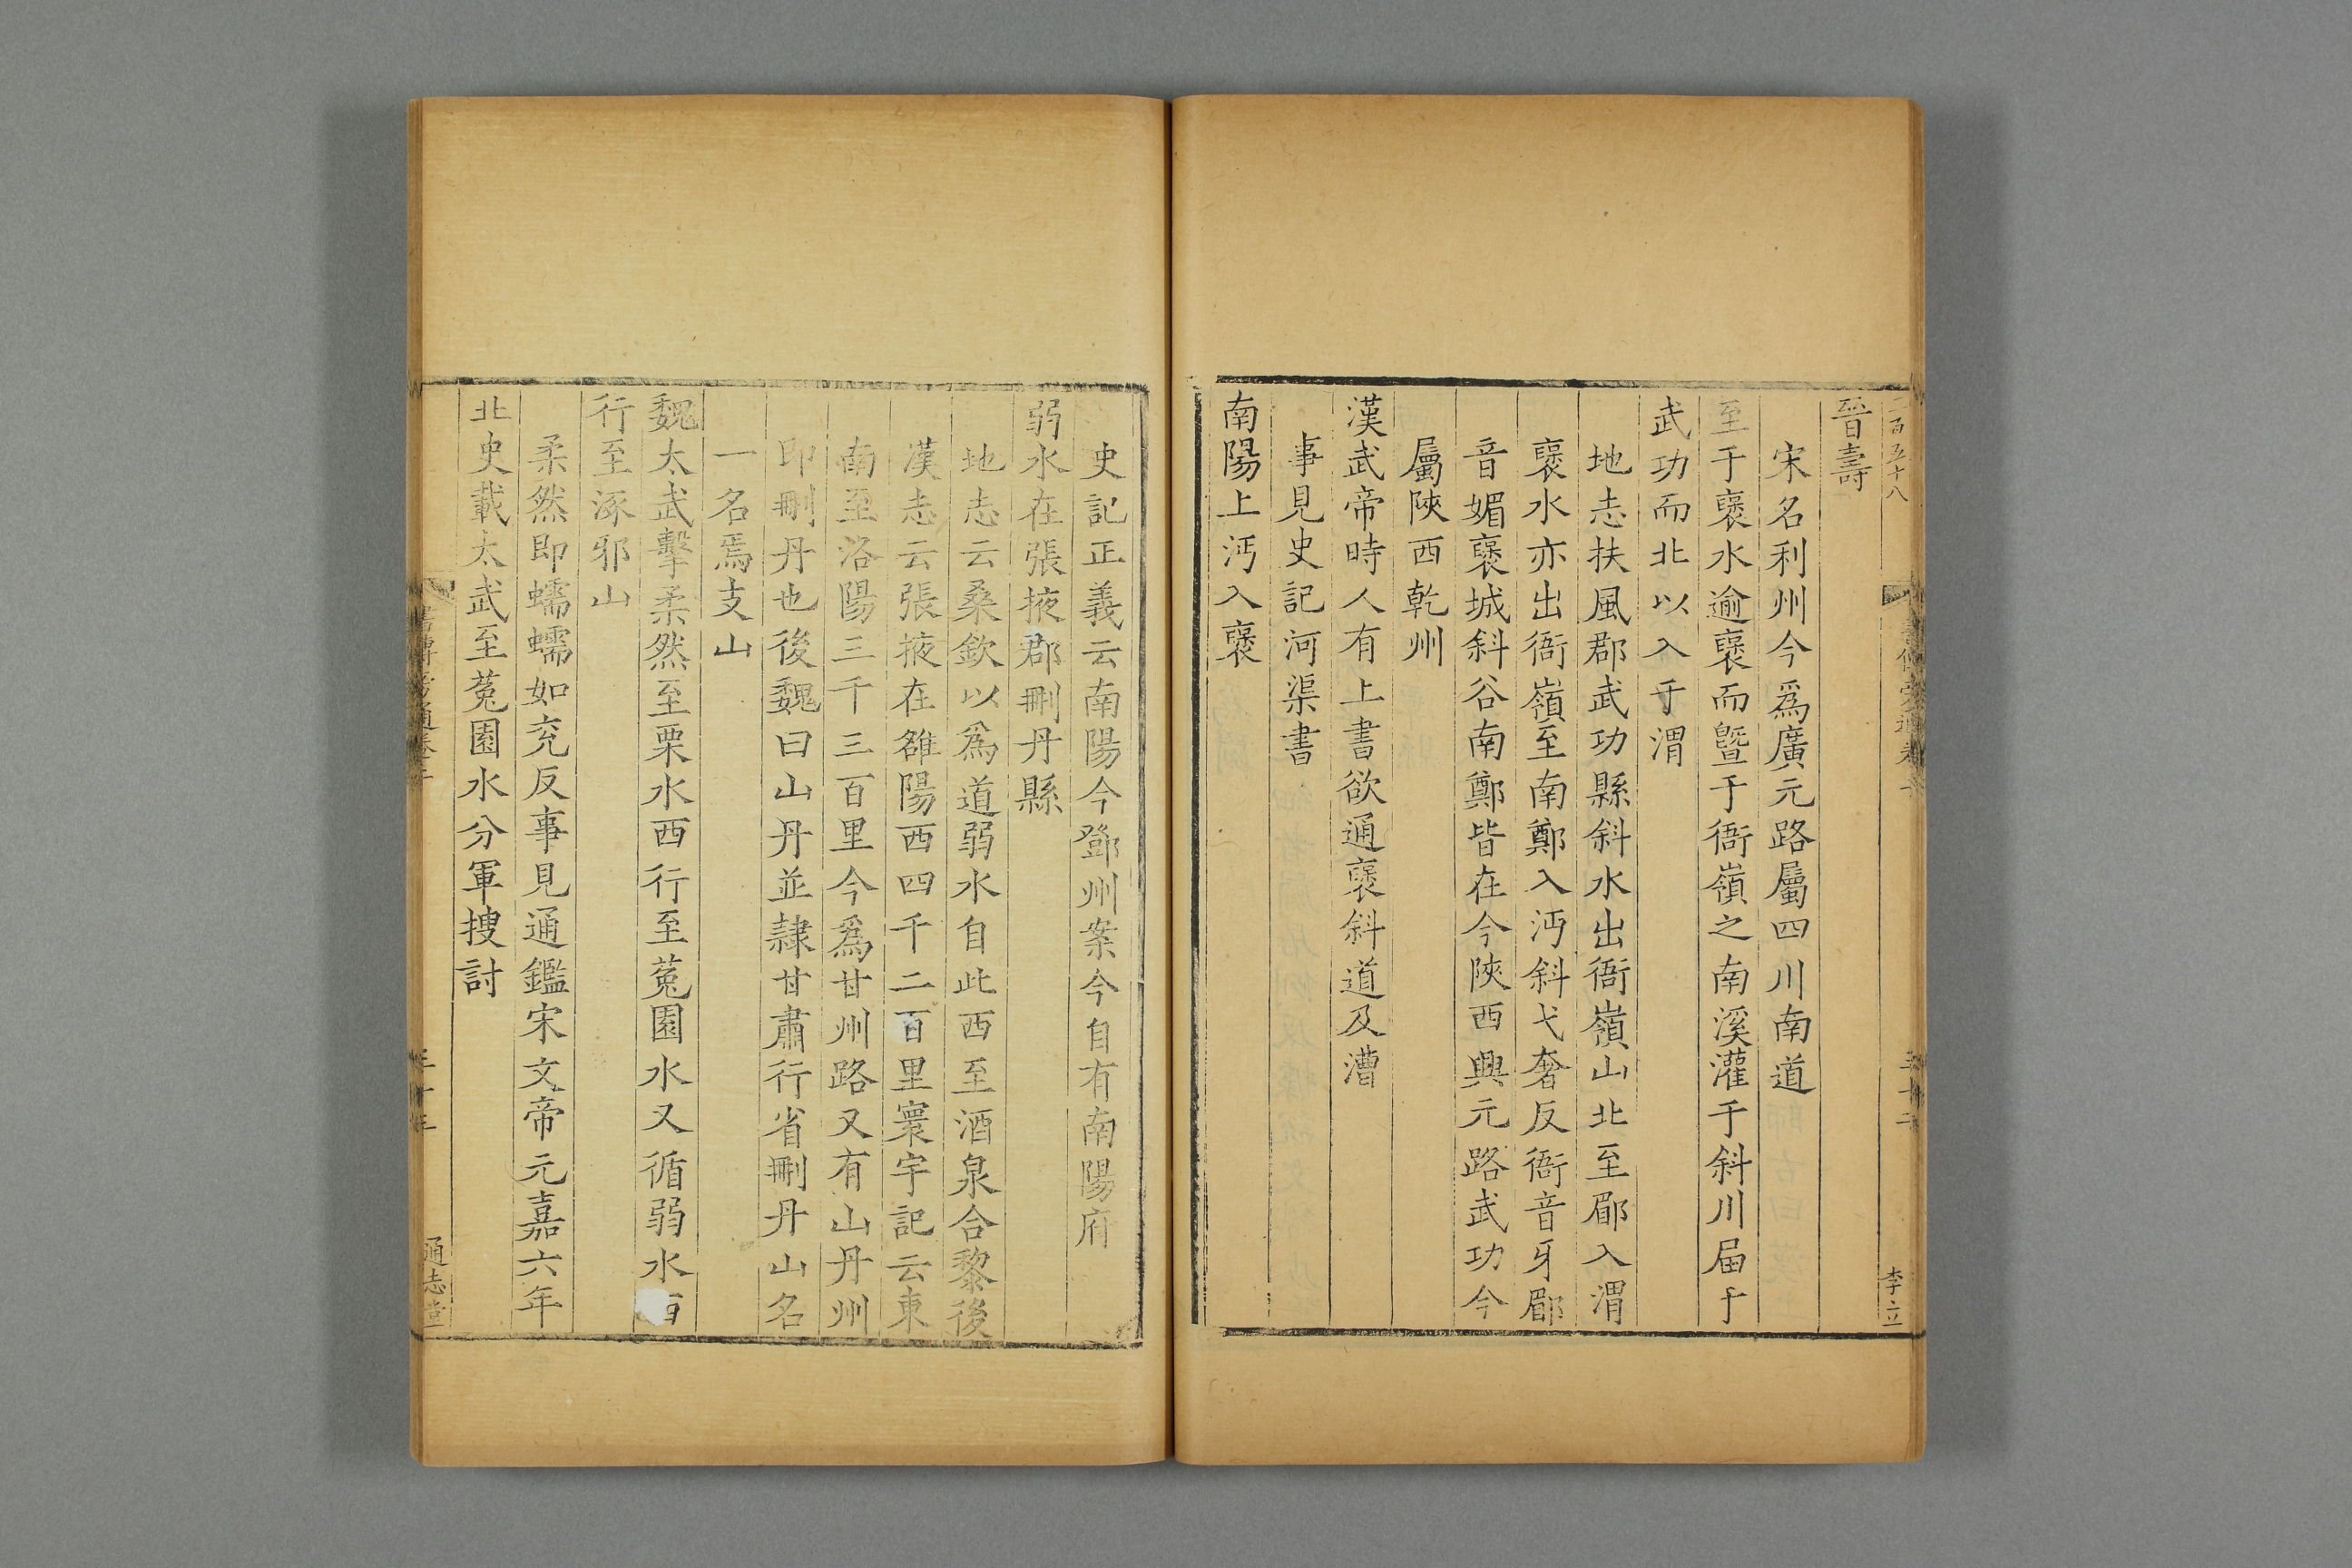 二百五十八
李立
晉壽
宋名利州今爲廣元路屬四川南道
至于褒水逾褒而曁于衙嶺之南溪灌于斜川屆于
武功而北以入于渭
地志扶風郡武功縣斜水出衙嶺山北至郿入渭
褒水亦出衙嶺至南鄭入沔斜弋奢反衙音牙郿
音媚褒城斜谷南鄭皆在今陜西興元路武功今
屬陜西乾州
漢武帝時人有上書欲通褒斜道及漕
事見史記河渠書
南陽上沔入褒
史記正義云南陽今鄧州案今自有南陽府
弱水在張掖郡刪丹縣
地志云桑欽以爲道弱水自此西至酒泉合黎後
漢志云張掖在雒陽西四千二百里寰宇記云東
南至洛陽三千三百里今爲甘州路又有山丹州
卽刪丹也後魏曰山丹並隷甘肅行省刪丹山名
一名焉支山
魏太武擊柔然至栗水西行至菟園水又循弱水西
行至涿邪山
柔然即蠕蠕如兖反事見通鑑宋文帝元嘉六年
北史載太武至菟園水分軍搜討
通志堂